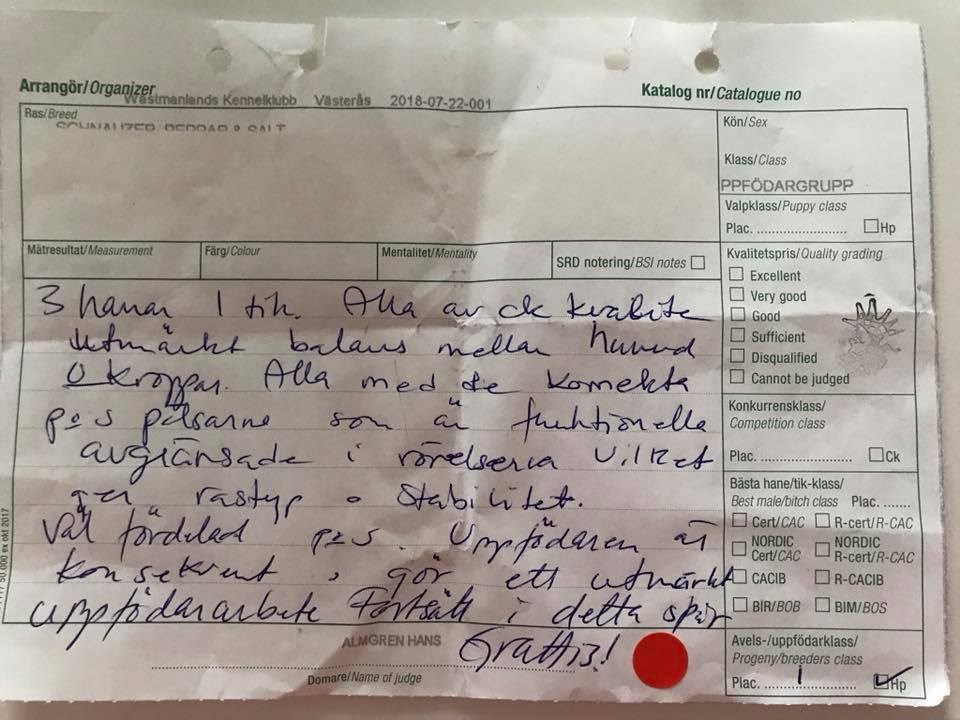 Arrangör/Organizer
Västmanlands Kennelklubb Västerås 2018-07-22-001
Katalog nr/Catalogue no
Ras/Breed
SCHNAUZER, PEPPAR & SALT
Kön/Sex
Klass/Class
PPFÖDARGRUPP
Valpklass/Puppy class
Plac. .................... Hp
Mätresultat/Measurement
Färg/Colour
Mentalitet/Mentality
SRD notering/BSI notes
Kvalitetspris/Quality grading
Excellent
Very good
Good
Sufficient
Disqualified
Cannot be judged
3 hanar 1 tik. Alla av ck kvalite
Utmärkt balans mellan huvud
o kroppar. Alla med de korrekta
p o s pälsarne som är funktionella
avgränsade i rörelserna vilket
ger rastyp o stabilitet.
Väl fördelad p o s. Uppfödaren är
konsekvent, gör ett utmärkt
uppfödararbete Fortsätt i detta spår
Grattis!
Konkurrensklass/
Competition class
Plac. .................... Ck
Bästa hane/tik-klass/
Best male/bitch class Plac. ......
Cert/CAC R-cert/R-CAC
NORDIC Cert/CAC NORDIC R-cert/R-CAC
CACIB R-CACIB
BIR/BOB BIM/BOS
Avels-/uppfödarklass/
Progeny/breeders class
Plac. ........1........ Hp
ALMGREN HANS
Domare/Name of judge